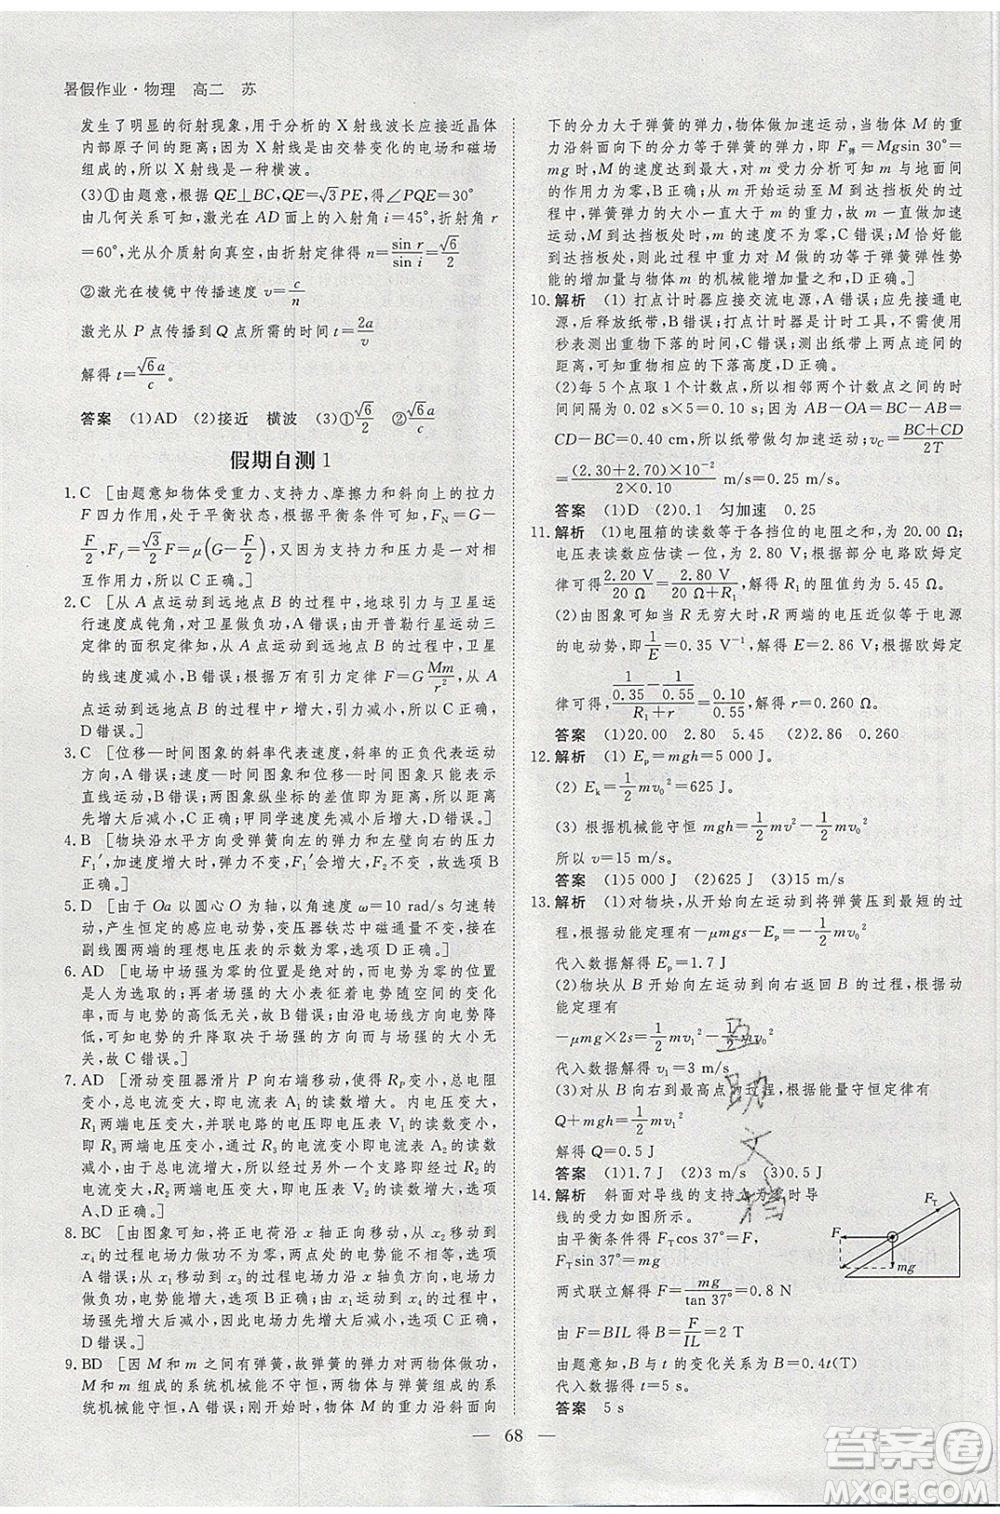 暑假作业·物理 高二 苏
发生了明显的衍射现象,用于分析的 X 射线波长应接近晶体
内部原子间的距离;因为 X 射线是由交替变化的电场和磁场
组成的,所以 X 射线是一种横波。
(3)①由题意,根据 QE⊥BC,QE=√3PE,得∠PQE=30°
由几何关系可知,激光在 AD 面上的入射角 i=45°,折射角 r
=60°,由介质射向真空,由折射定律得 n=sin r/sin i=√6/2
②激光在棱镜中传播速度 v=c/n
激光从 P 点传播到 Q 点所需的时间 t=2a/v
解得 t=√6a/c。
答案 (1)AD (2)接近 横波 (3)①√6/2 ②√6a/c
假期自测 1
1. C [由题意知物体受重力、支持力、摩擦力和斜向上的拉力
F 四力作用,处于平衡状态,根据平衡条件可知,F_N=G-
F/2,F_f=√3/2 F=μ(G-F/2),又因为支持力和压力是一对相
互作用力,所以 C 正确。]
2. C [从 A 点运动到远地点 B 的过程中,地球引力与卫星运
行速度成钝角,对卫星做负功,A 错误;由开普勒行星运动三
定律的面积定律可知,从近地点运动到远地点的过程中,卫星
的线速度减小,C 正确;根据万有引力定律 F=G Mm/r²,从 A
点运动到远地点 B 的过程中 r 增大,引力减小,所以 B 错误,
D 错误。]
3. C [位移—时间图象的斜率代表速度,斜率的正负代表运动
方向,A 错误;速度—时间图象和位移—时间图象只能表示
直线运动,B 错误;两图象纵坐标的差值即为距离,所以距离
先增大后减小,C 正确;甲同学速度先减小后增大,D 错误。]
4. B [物块沿水平方向受弹簧向左的弹力和左壁向右的压力
F₁′,加速度增大时,弹力不变,F₁′会减小,F₂不变,故选项 B
正确。]
5. D [由于 Oa 以圆心 O 为轴,以角速度 ω=10 rad/s 匀速转
动,产生恒定的感应电动势,变压器铁芯中磁通量不变,接在
副线圈两端的理想电压表的示数为零,选项 D 正确。]
6. AD [电场中场强为零的位置是确定的,而电势为零的位置是
人为选取的;再者场强的大小表征着电势随空间位置的变化
率,与电势的大小没有必然联系,故 D 正确;由沿电场线方向
电势降低,电势的升降取决于场强的方向而与场强的大小无
关,故 A 正确,B、C 错误。]
7. AD [滑动变阻器滑片 P 向右端移动,使得 R_P 变小,总电阻
变小,总电流变大,即电流表 A₁ 的读数增大。内电压变大,
R₁ 两端电压变大,并联电路电压变小,即电压表 V₁ 的读数变
小,R₃ 两端电压变小,通过 R₃ 的电流变小,而总电流变大,
那么通过并联电路的另一个支路即过 R₂ 的电流变大,即 A₂
的读数变大,R₂ 两端电压变大,即电压表 V₂ 的读数变大,选项
A、D 正确。]
8. BC [由图象可知,将正电荷沿 x 轴正向移动,从 x₂ 移动到
x₄ 的过程电势能减小,电场力做功不为零,两点的电势不相等,
A 错误;从 x₁ 运动到 x₃ 的过程中电势能不断增大,B 正确;由 x₁ 运动到 x₄ 的过程中,
场强先增大后减小,所以电场力先增大后减小,C 正确,D
错误。]
9. BD [因 M 和 m 之间有弹簧,故弹簧的弹力对两物体做功,
M 和 m 组成的系统机械能不守恒,两物体与弹簧组成的系统
系统机械能守恒,A 错误;刚开始时,物体 M 的重力沿斜面向
下的分力大于弹簧的弹力,物体做加速运动,当物体 M 的重
力沿斜面向下的分力等于弹簧的弹力,即 F弹=Mgsin 30°=
mg 时,M 的速度达到最大,再对 m 受力分析可知 m 对地面
的作用力为零,B 正确;从 m 开始运动至 M 到达挡板处的过
程中,弹力的大小一直大于 m 的重力,故 m 一直做加速
运动,M 到达挡板处时,m 的速度不为零,C 错误;M 恰好能到
达挡板处,则此过程中重力对 M 做的功等于弹簧弹性势能
的增加量与物体 m 的机械能增加量之和,D 正确。]
10. 解析 (1) 打点计时器应接交流电源,A 错误;应先接通电
源,后释放纸带,B 错误;打点计时器是计时工具,不需使用
秒表测量下落的时间,C 错误;测出纸带上两点迹间的
距离,可知重物相应的下落高度,D 正确。
(2)每 5 个点取 1 个计数点,所以相邻两个计数点之间的时
间间隔为 0.02 s×5=0.10 s;因为 AB-OA=BC-AB=
CD-BC=0.40 cm,所以纸带做匀加速运动,v_C=(BC+CD)/2T
=(2.30+2.70)×10⁻²/(2×0.10) m/s=0.25 m/s。
答案 (1)D (2)0.1 匀加速 0.25
11. 解析 (1)电阻箱的读数等于各挡位的电阻之和,为 20.00 Ω;
电压表读数应估读一位,为 2.80 V;根据部分电路欧姆定
律可得2.20 V/20 Ω=2.80 V/(20 Ω+R₁),解得 R₁ 的阻值约为 5.45 Ω。
(2)由图象可知当 R 无穷大时,R 两端的电压近似等于电源
的电动势,即1/E=0.35 V⁻¹,解得 E=2.86 V;根据欧姆定
律可得(1/0.35-1/0.55)/(R₁+r)=0.10/0.55,解得 r=0.260 Ω。
答案 (1)20.00 2.80 5.45 (2)2.86 0.260
12. 解析 (1) E_p=mgh=5 000 J
(2) E_k=1/2 mv₀²=625 J
(3) 根据机械能守恒 mgh=1/2 mv²-1/2 mv₀²
所以 v=15 m/s
答案 (1)5 000 J (2)625 J (3)15 m/s
13. 解析 (1)对物块,从开始向左运动到将弹簧压到最短的过程,
对物块由动能定理有 -μmgs-E_p=0-1/2 mv₀²
代入数据解得 E_p=1.7 J
(2)物块从 B 开始向左运动到向右返回 B 的过程,由动
能定理有
-μmg×2s=1/2 mv₁²-1/2 mv₀²
代入数据解得 v₁=3 m/s
(3)对从 B 向右到最高点的过程,根据能量守恒定律有
Q+mgh=1/2 mv₁²
解得 Q=0.5 J
答案 (1)1.7 J (2)3 m/s (3)0.5 J
14. 解析 斜面对导线的支持力为零时导
线的受力如图所示。
由平衡条件得 F_Tcos 37°=F,
F_Tsin 37°=mg
两式联立解得 F=mg/tan 37°=0.8 N
由 F=BIL 得 B=F/IL=2 T
由题意知,B 与 t 的变化关系为 B=0.4t(T)
代入数据得 t=5 s。
答案 5 s
F_T
F
mg
互助文档
— 68 —
答案圈
MXQE.COM